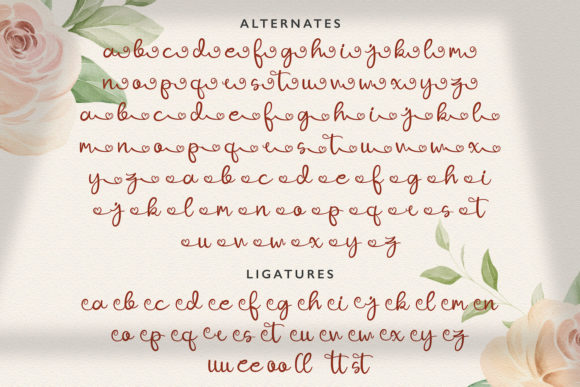 ALTERNATES
a b c d e f g h i j k l m
n o p q r s t u v w x y z
a b c d e f g h i j k l
m n o p q r s t u v w x
y z a b c d e f g h i
j k l m n o p q r s t
u v w x y z
LIGATURES
ea eb ec ed ee ef eg eh ei ej ek el em en
eo ep eq er es et eu ev ew ex ey ez
uu ee oo ll tt st